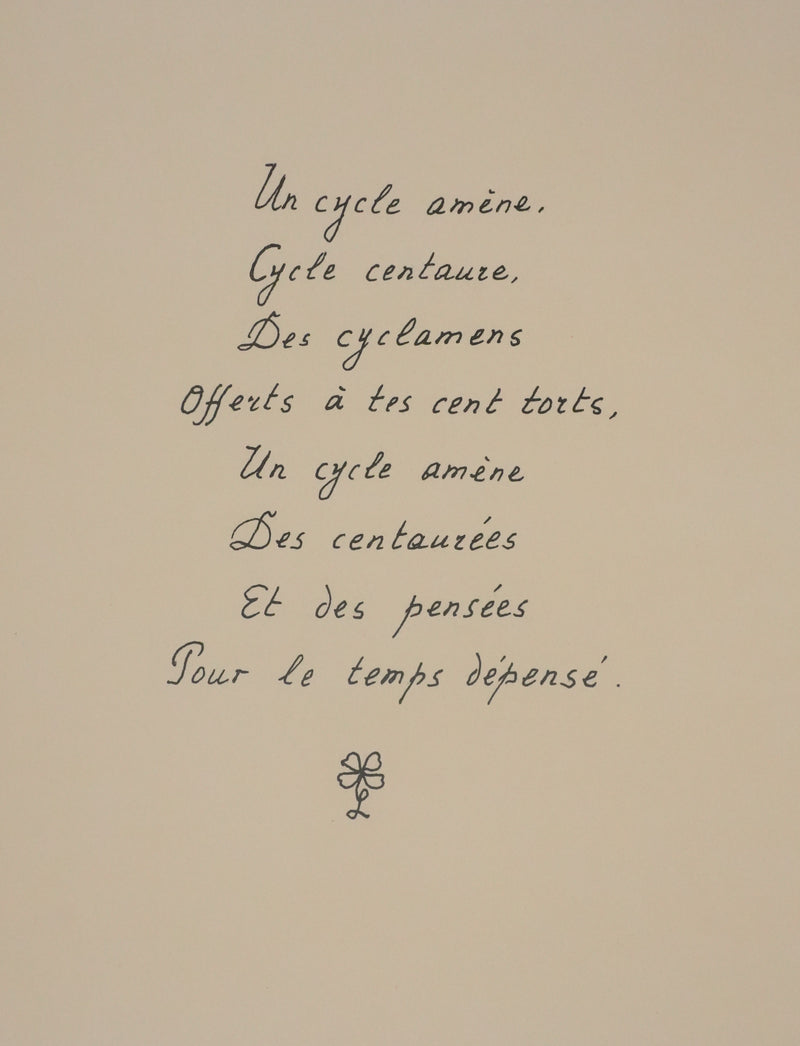 Un cycle amène,
Cycle centaure,
Des cyclamens
Offerts à tes cent torts,
Un cycle amène
Des centaurées
Et des pensées
Pour le temps dépensé.